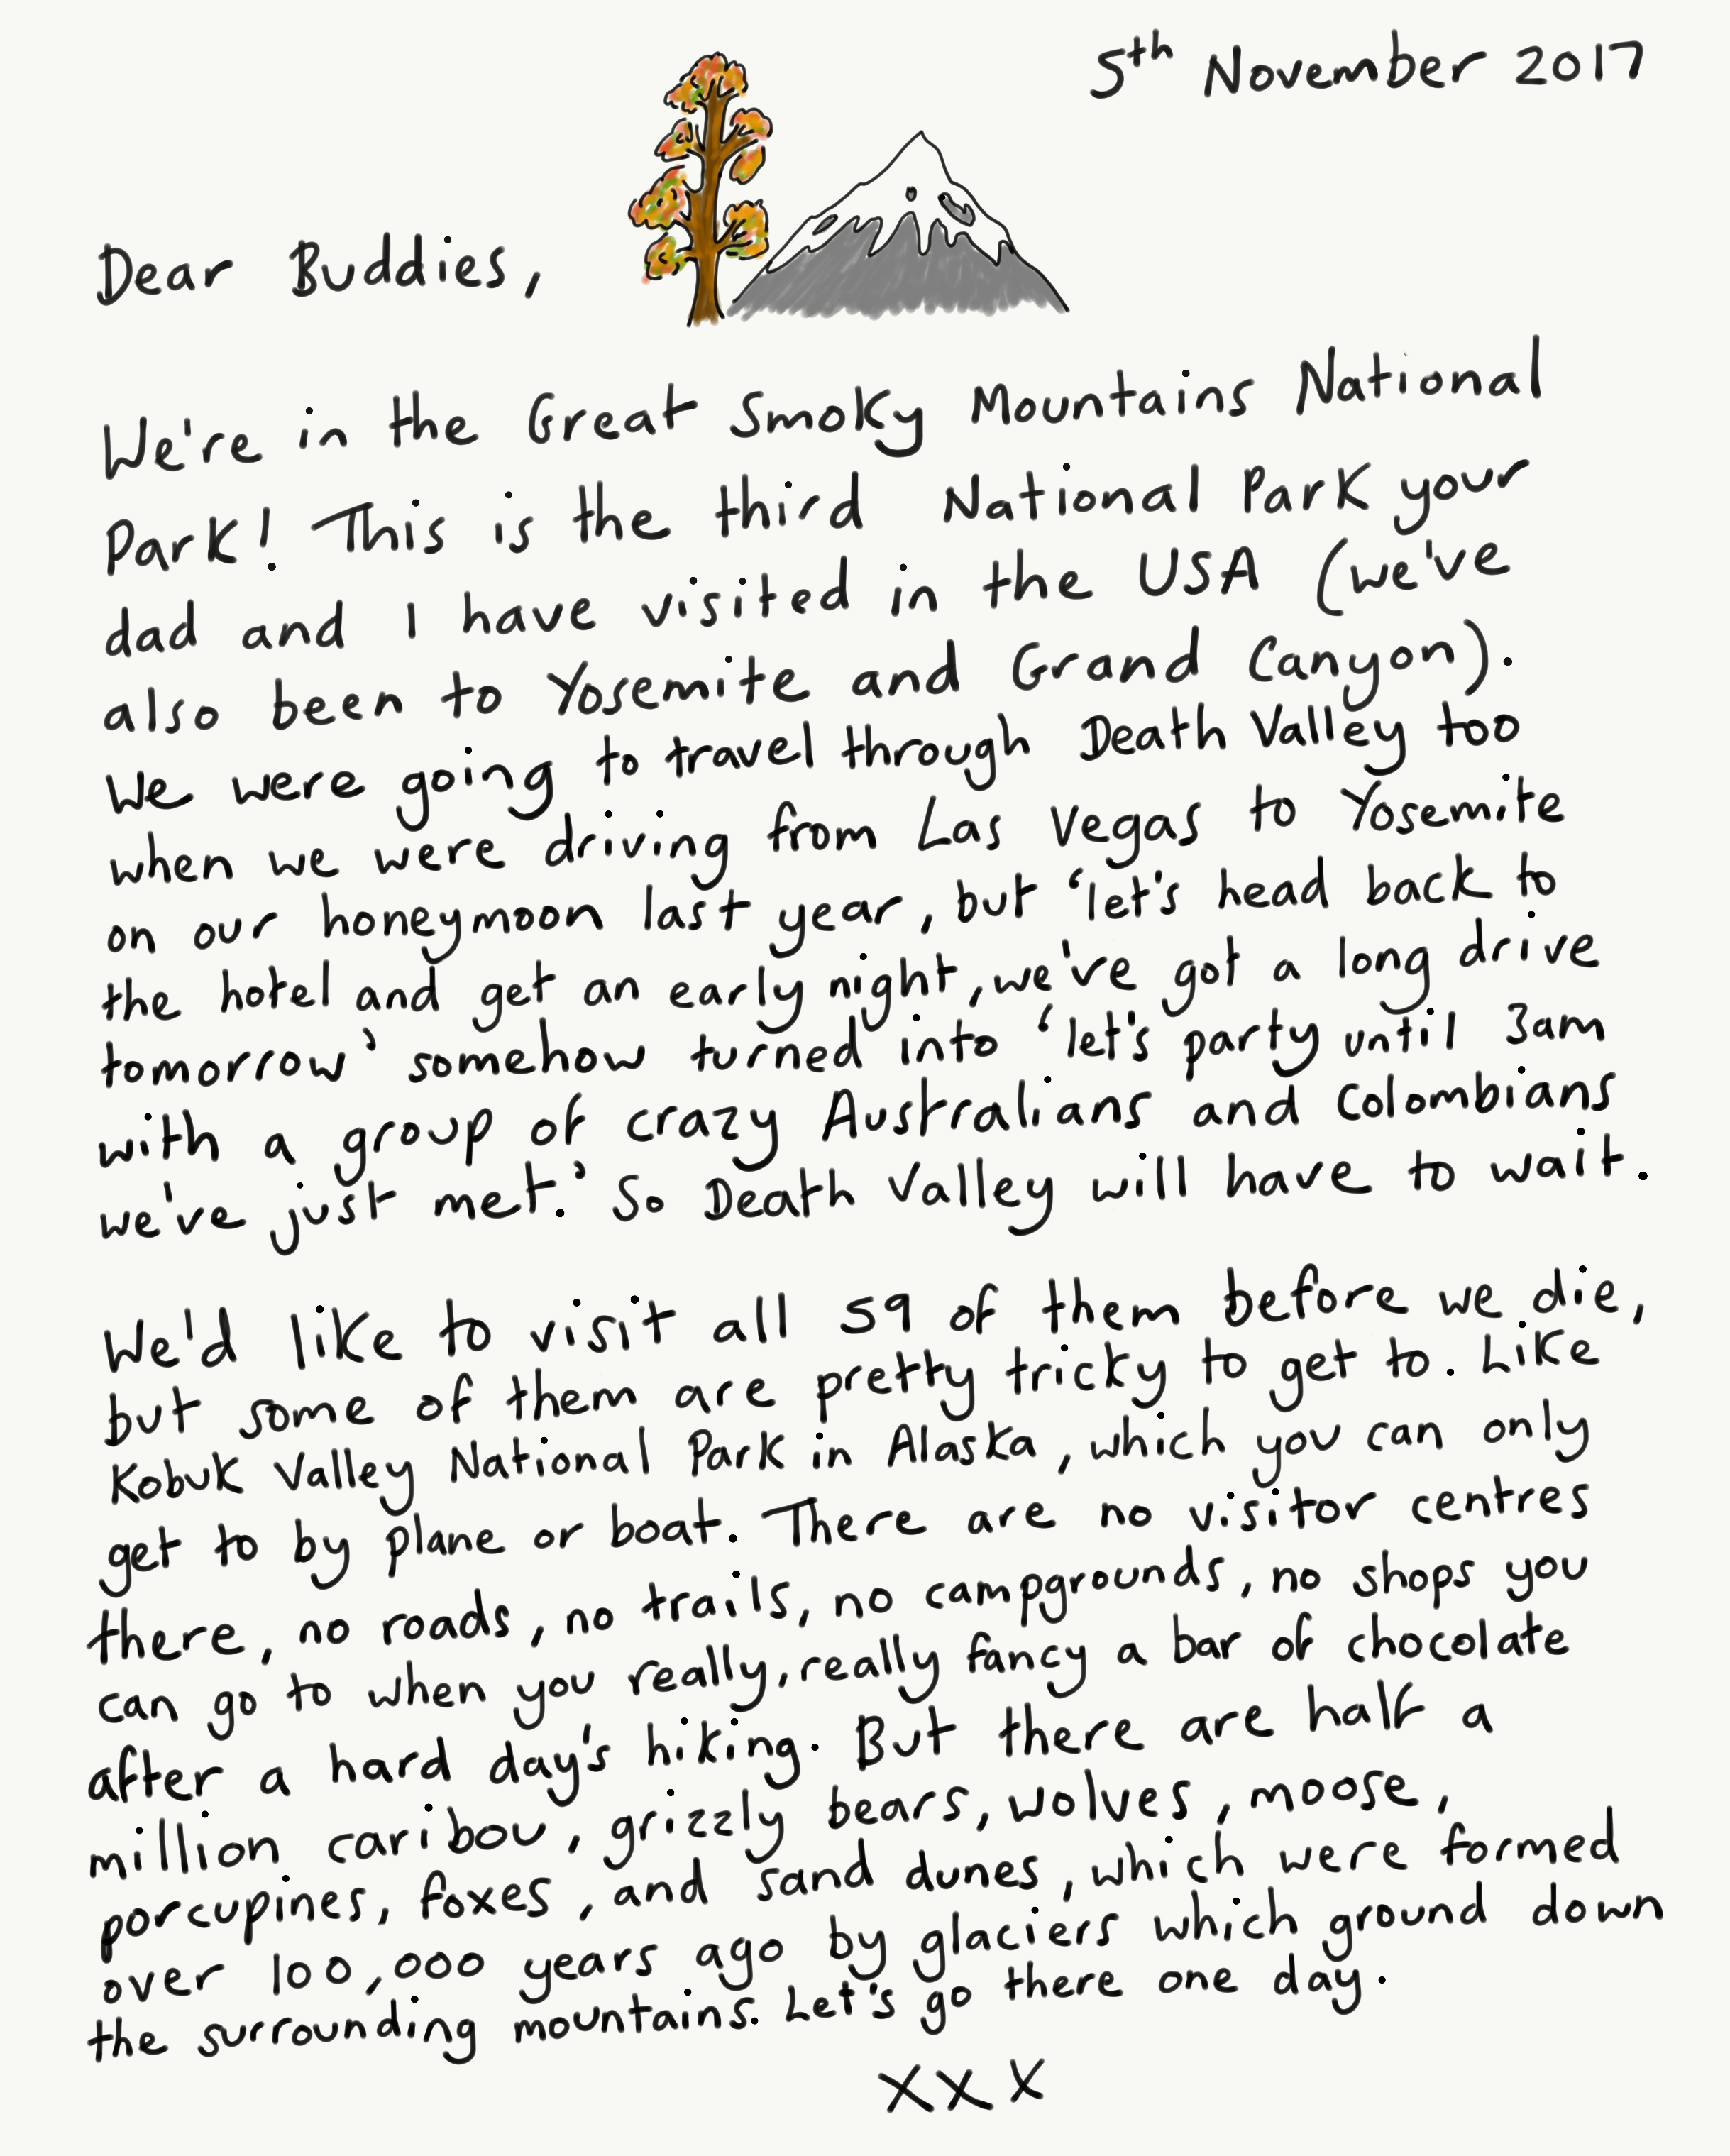 5th November 2017
Dear Buddies,
We're in the Great Smoky Mountains National
Park! This is the third National Park your
dad and I have visited in the USA (we've
also been to Yosemite and Grand Canyon).
We were going to travel through Death Valley too
when we were driving from Las Vegas to Yosemite
on our honeymoon last year, but 'let's head back to
the hotel and get an early night, we've got a long drive
tomorrow' somehow turned into 'let's party until 3am
with a group of crazy Australians and Colombians
we've just met.' So Death Valley will have to wait.
We'd like to visit all 59 of them before we die,
but some of them are pretty tricky to get to. Like
Kobuk Valley National Park in Alaska, which you can only
get to by plane or boat. There are no visitor centres
there, no roads, no trails, no campgrounds, no shops you
can go to when you really, really fancy a bar of chocolate
after a hard day's hiking. But there are half a
million caribou, grizzly bears, wolves, moose,
porcupines, foxes, and sand dunes, which were formed
over 100,000 years ago by glaciers which ground down
the surrounding mountains. Let's go there one day.
XXX